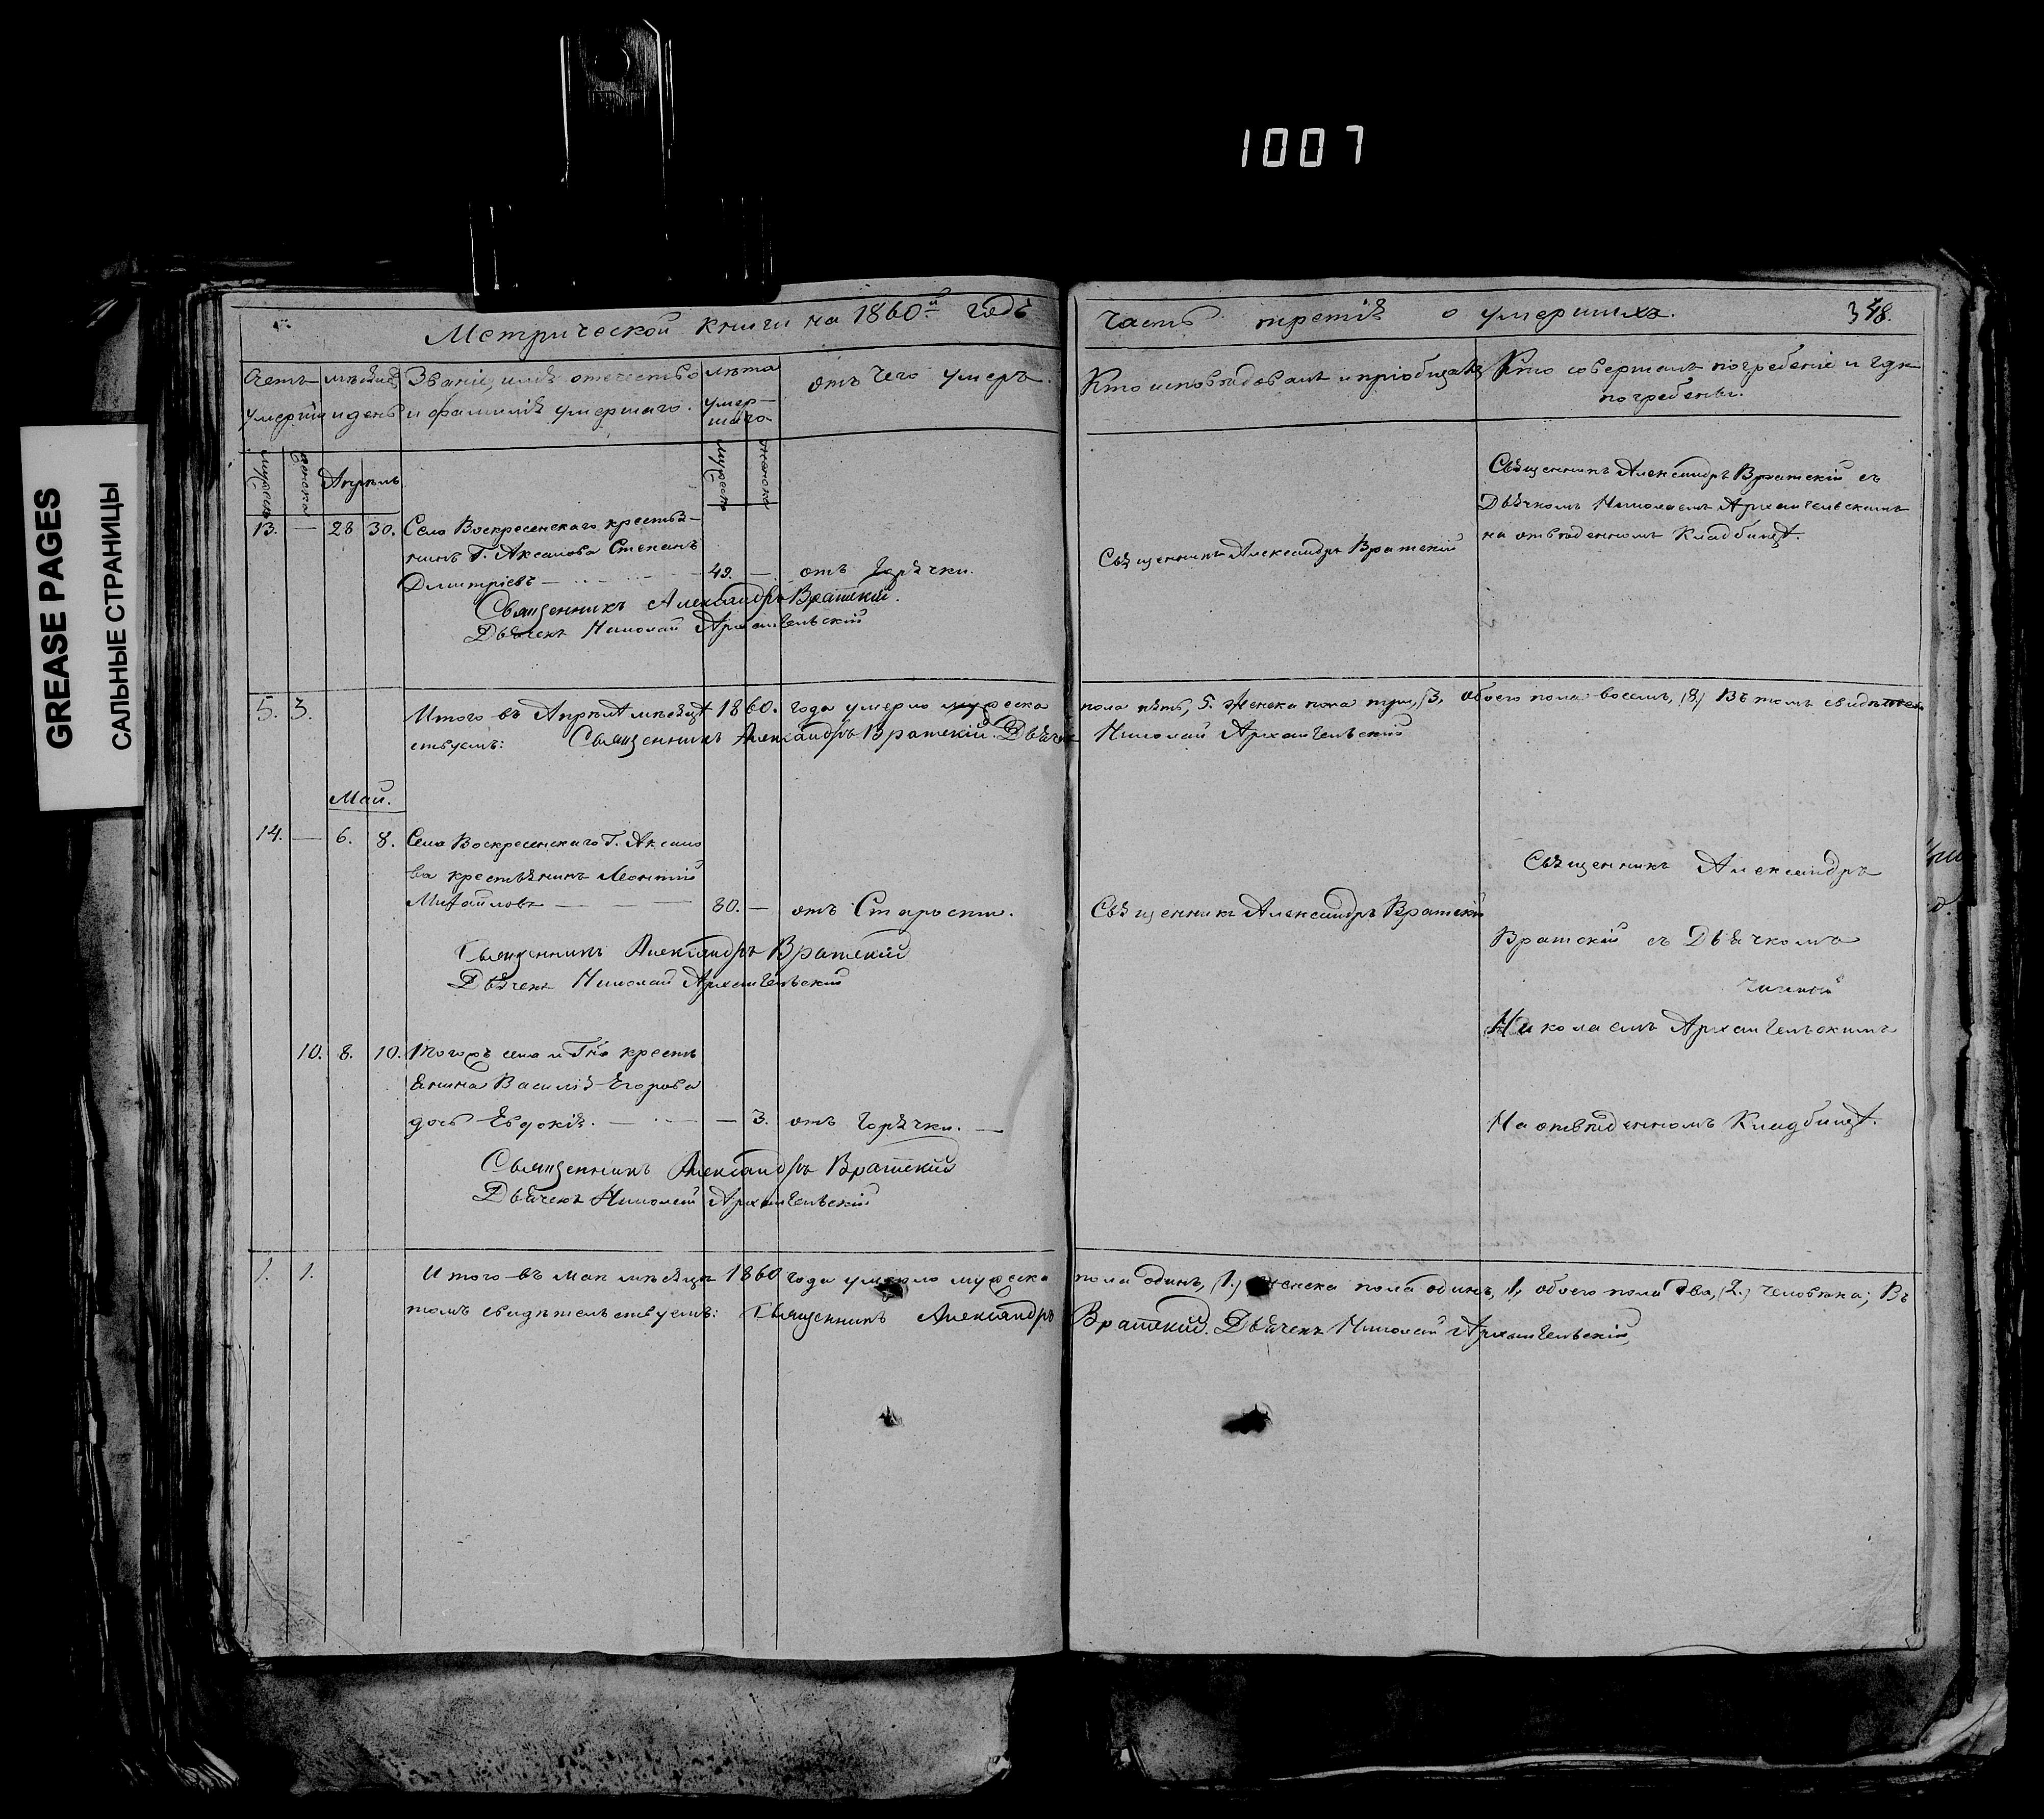 1007
GREASE PAGES
САЛЬНЫЕ СТРАНИЦЫ
Метрической книги на 1860й годъ
Счетъ умершихъ
мѣсяцъ и день
Званіе, имя отечество
и фамилія умершаго.
лѣта
умер-
шаго
отъ чего умеръ.
мужеска
женска
Апрѣль
мужеска
женска
13. — 28 30. Села Воскресенскаго крестья-
нинъ Г. Аксакова Степанъ
Дмитріевъ — 49. — отъ Горячки.
Священникъ Александръ Вратскій.
Дьячекъ Николай Архангельскій
5. 3. Итого въ Апрѣлѣ мѣсяцѣ 1860. года умерло мужеска
ствуемъ: Священникъ Александръ Вратскій. Дьячекъ
Май.
14. — 6. 8. Села Воскресенскаго Г. Аксако
ва крестьянинъ Леонтій
Михайловъ — 80. — отъ Старости.
Священникъ Александръ Вратскій
Дьячекъ Николай Архангельскій
10. 8. 10. Тогожъ села и Гна кресть
янина Василія Егорова
дочь Евдокія. — — 3. отъ Горячки. —
Священникъ Александръ Вратскій
Дьячекъ Николай Архангельскій
1. 1. Итого въ маи мѣсяцѣ 1860 года умерло мужеска
томъ свидѣтельствуемъ: Священникъ Александръ
часть третія о умершихъ. 348.
Кто исповѣдовалъ и пріобщалъ
Кто совершалъ погребеніе и гдѣ
погребены.
Священникъ Александръ Вратскій
Священникъ Александръ Вратскій съ
Дьячкомъ Николаемъ Архангельскимъ
на отведенномъ Кладбищѣ.
пола пять, 5. Женска пола три, (3, обоего пола восемь, (8.) Въ томъ свидѣтель
Николай Архангельскій
Священникъ Александръ Вратскій
Священникъ Александръ
Вратскій съ Дьячкомъ
Николаемъ Архангельскимъ
На отведенномъ Кладбищѣ.
пола одинъ, (1.) женска пола одинъ, 1, обоего пола два, (2.) человѣка; Въ
Вратскій. Дьячекъ Николай Архангельскій